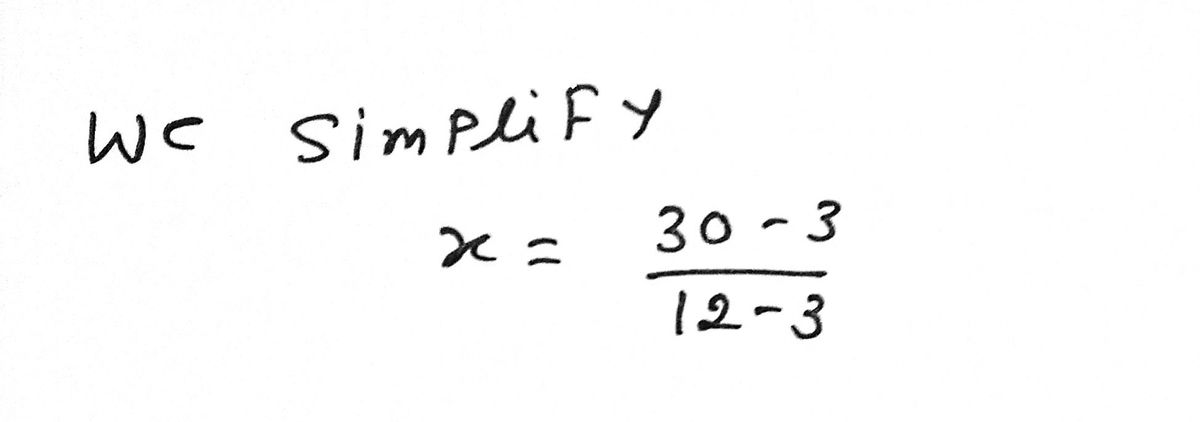 We simplify
x = 30 - 3
12 - 3